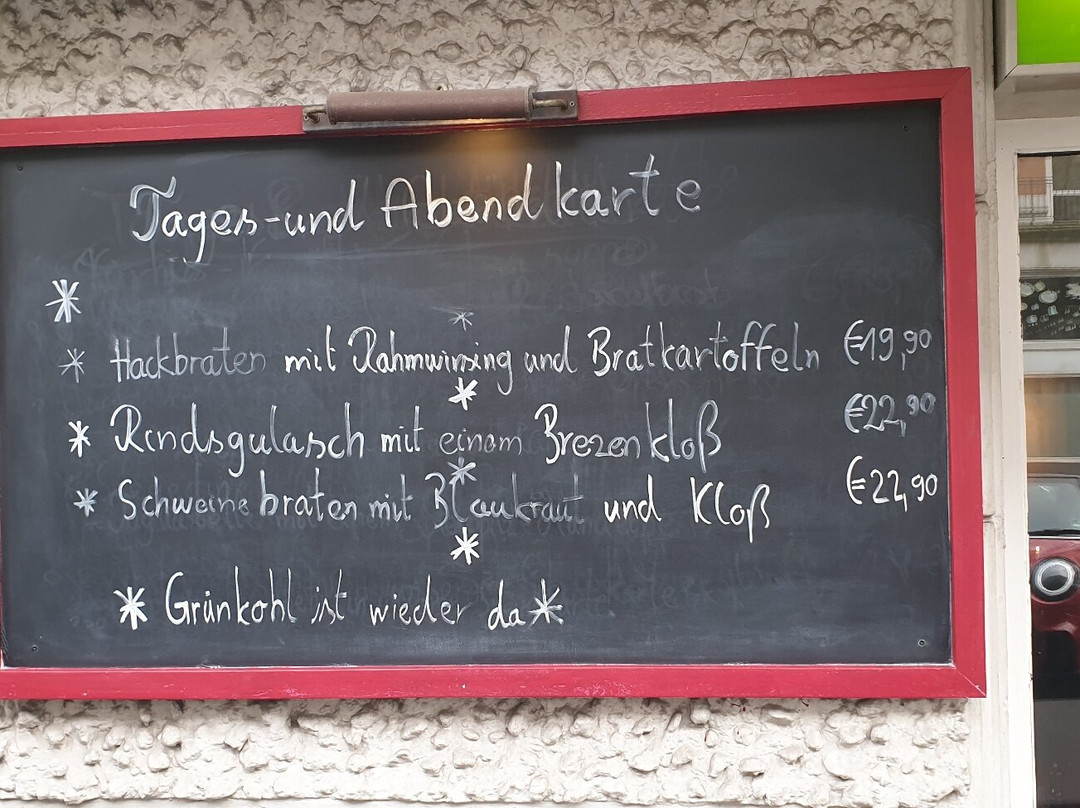 Tages-und Abendkarte
* Hackbraten mit Rahmwirsing und Bratkartoffeln €19,90
* Rindsgulasch mit einem Brezenkloß €22,90
* Schweinebraten mit Blaukraut und Kloß €22,90
* Grünkohl ist wieder da *